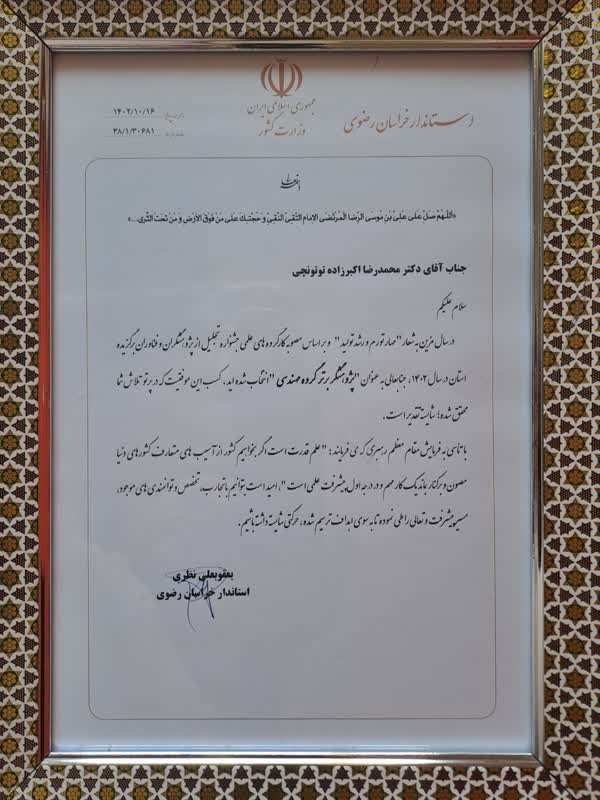 جمهوری اسلامی ایران
وزارت کشور
استاندار خراسان رضوی
۱۴۰۲/۱۰/۱۶
۳۸/۱/۳۰۶۸۱
«اَللّهُمَّ صَلِّ عَلی عَلِیِّ بْنِ مُوسَی الرِّضَا الْمُرْتَضَی الاِمامِ التَّقِیِّ النَّقِیِّ وَ حُجَّتِکَ عَلی مَنْ فَوْقَ الاَرْضِ وَ مَنْ تَحْتَ الثَّری...»
جناب آقای دکتر محمدرضا اکبرزاده توتونچی
سلام علیکم
در سال مزین به شعار "مهار تورم و رشد تولید" و بر اساس مصوبه کارگروه های علمی جشنواره تجلیل از پژوهشگران و فناوران برگزیده
استان در سال ۱۴۰۲، جنابعالی به عنوان "پژوهشگر برتر گروه مهندسی" انتخاب شده اید. کسب این موفقیت که در پرتو تلاش شما
محقق شده؛ شایسته تقدیر است.
با تاسی به فرمایش مقام معظم رهبری که می فرمایند: "علم قدرت است اگر بخواهیم کشور از آسیب های متعارف کشورهای دنیا
مصون و برکنار بماند یک کار مهم و در درجه اول پیشرفت علمی است"، امید است بتوانیم با تجارب، تخصص و توانمندی های موجود،
مسیر پیشرفت و تعالی را طی نموده تا به سوی اهداف ترسیم شده، حرکتی شایسته داشته باشیم.
یعقوبعلی نظری
استاندار خراسان رضوی